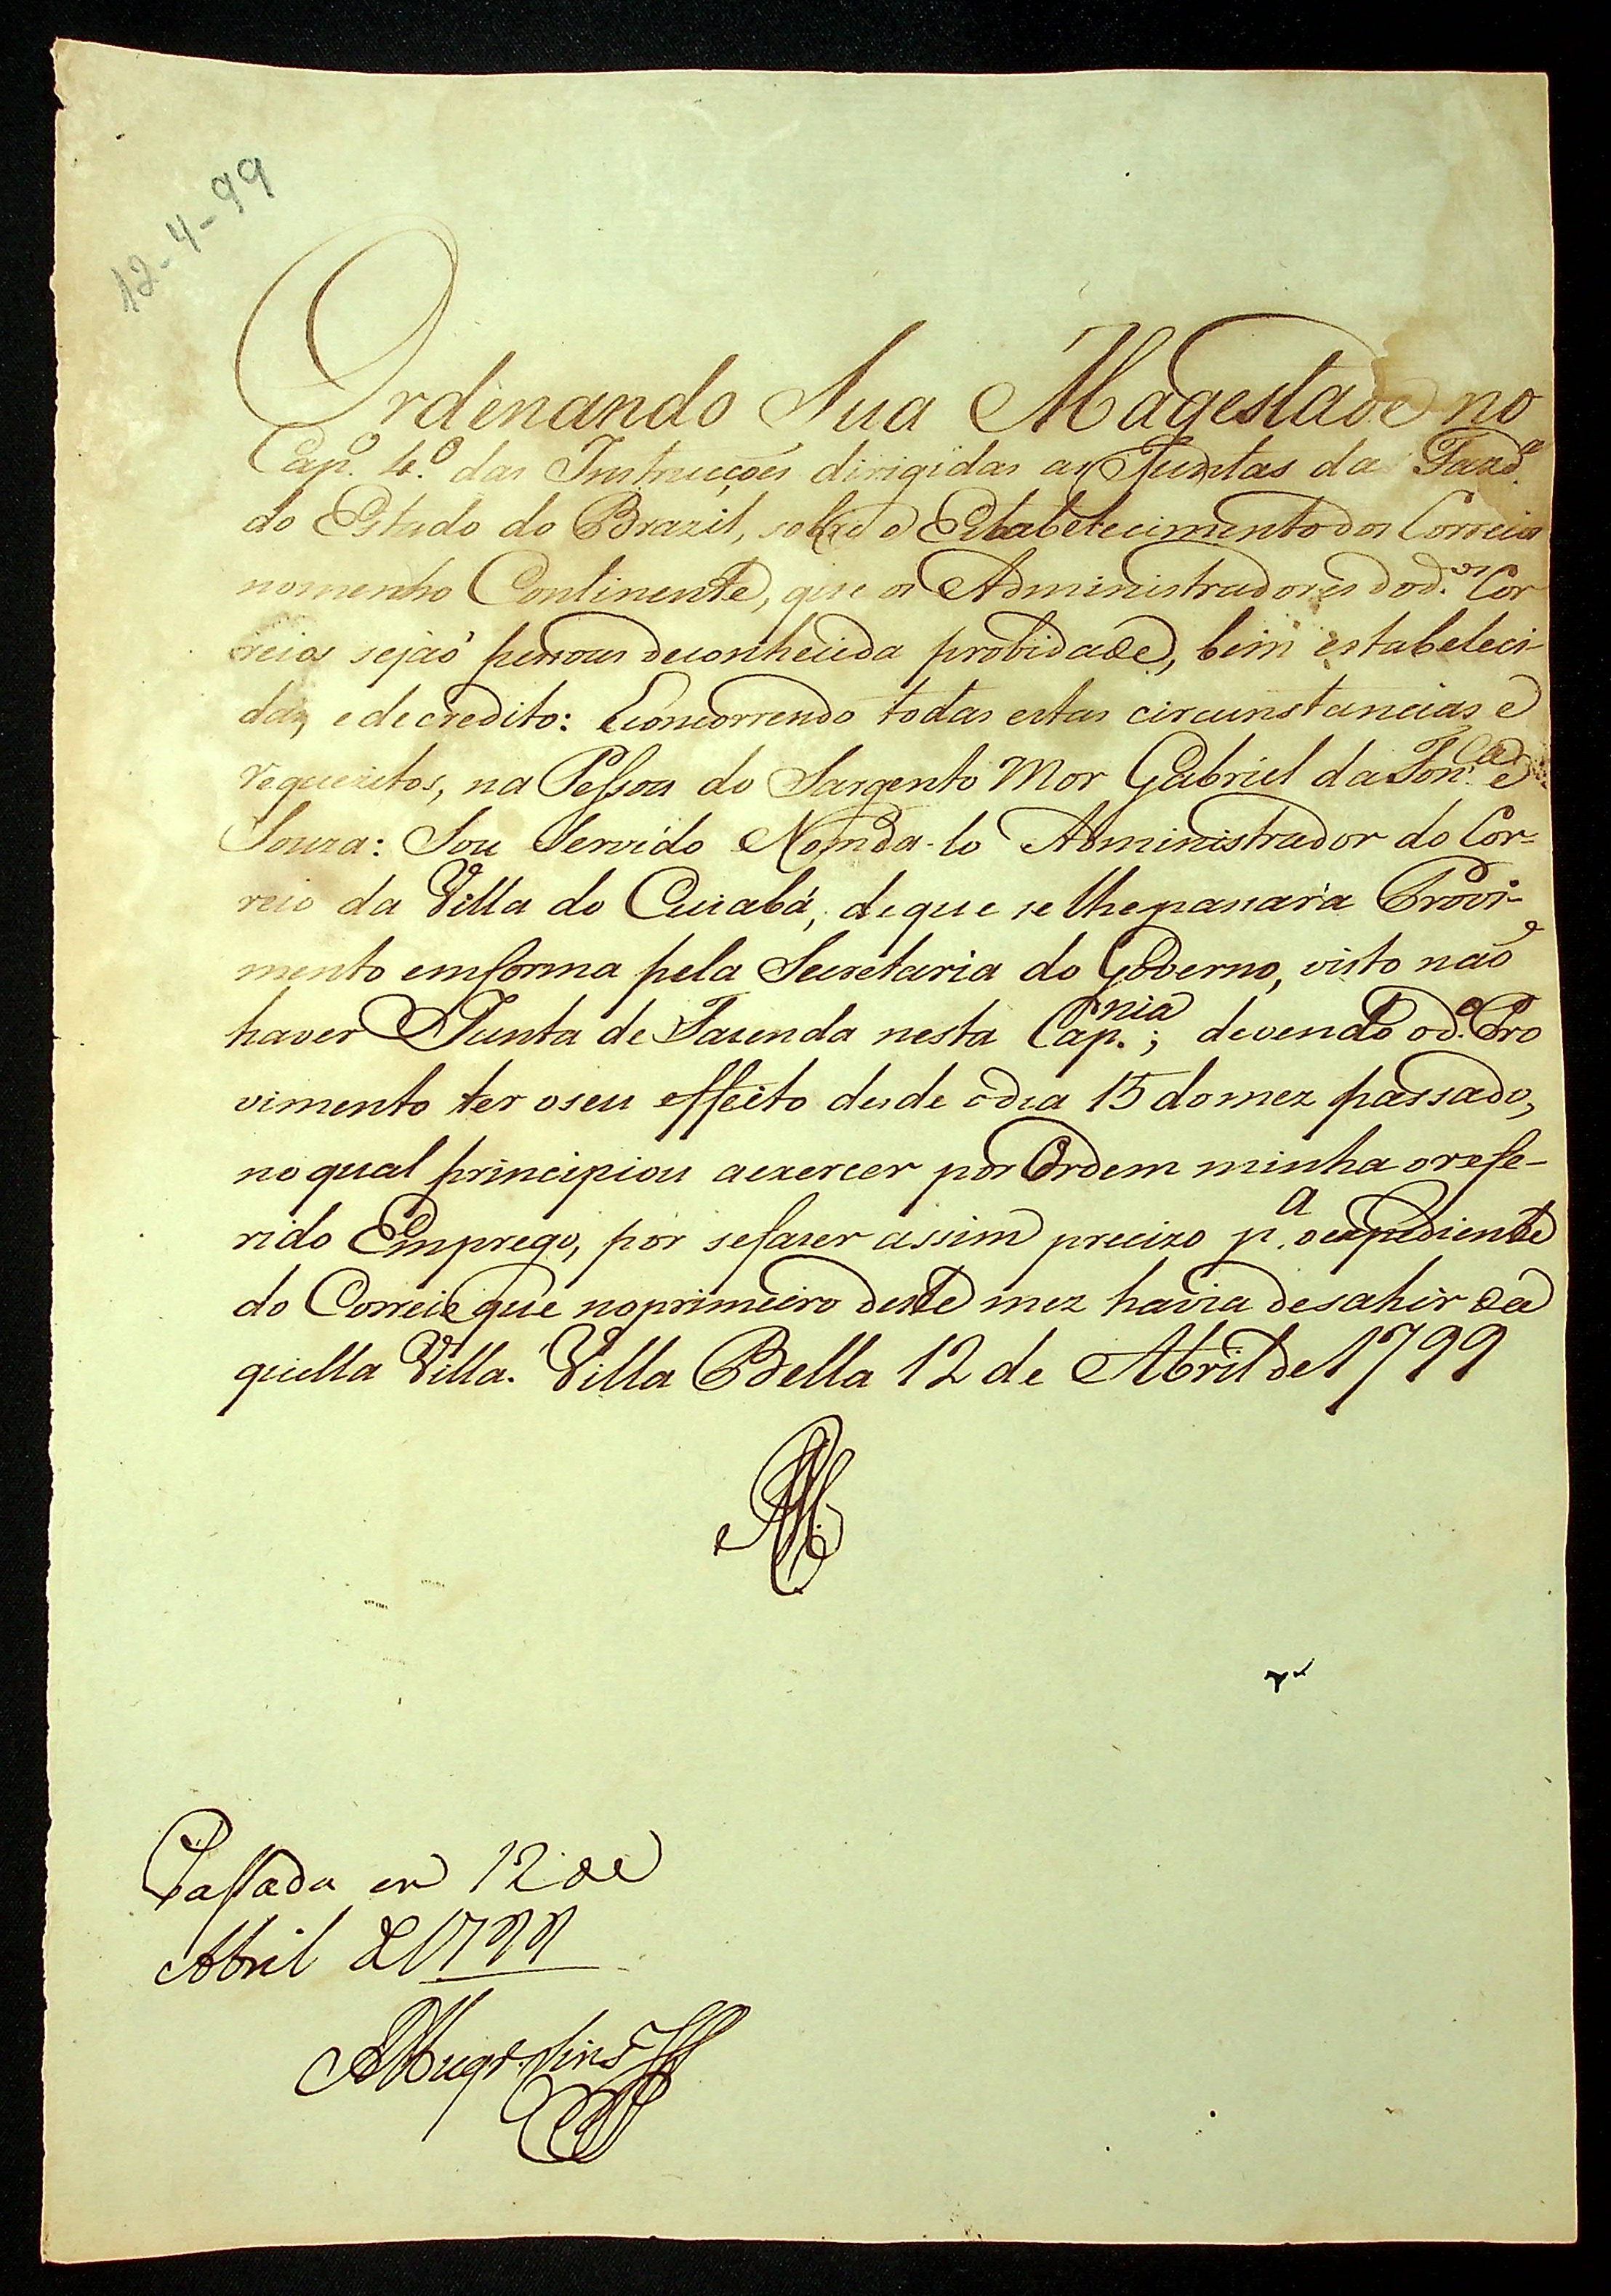 12-4-99
Ordenando Sua Magestade no
Cap.º 4.º das Instrucções dirigidas as Juntas da Fazd.ª
do Estado do Brazil, sobre o Estabelecimento dos Correios
no mesmo Continente, que os Administradores dos d.os Cor-
reios sejaõ pessoas de conhecida probidade, bem estabeleci-
das, e de credito: E concorrendo todas estas circunstancias e
requezitos, na Pessoa do Sargento Mor Gabriel da Fon.ca e
Souza: Sou Servido Nomea-lo Administrador do Cor=
reio da Villa do Cuiabá, de que se lhe passará Provi-
mento em forma pela Secretaria do Governo, visto naõ
haver Junta de Fazenda nesta Cap.nia; devendo o d.º Pro
vimento ter o seu effeito desde o dia 15 do mez passado,
no qual principiou a exercer por Ordem minha o refe-
rido Emprego, por se fazer assim precizo p.a o expediente
do Correio que no primeiro deste mez havia de sahir da
quella Villa. Villa Bella 12 de Abril de 1799
Passada em 12 de
Abril de 1799